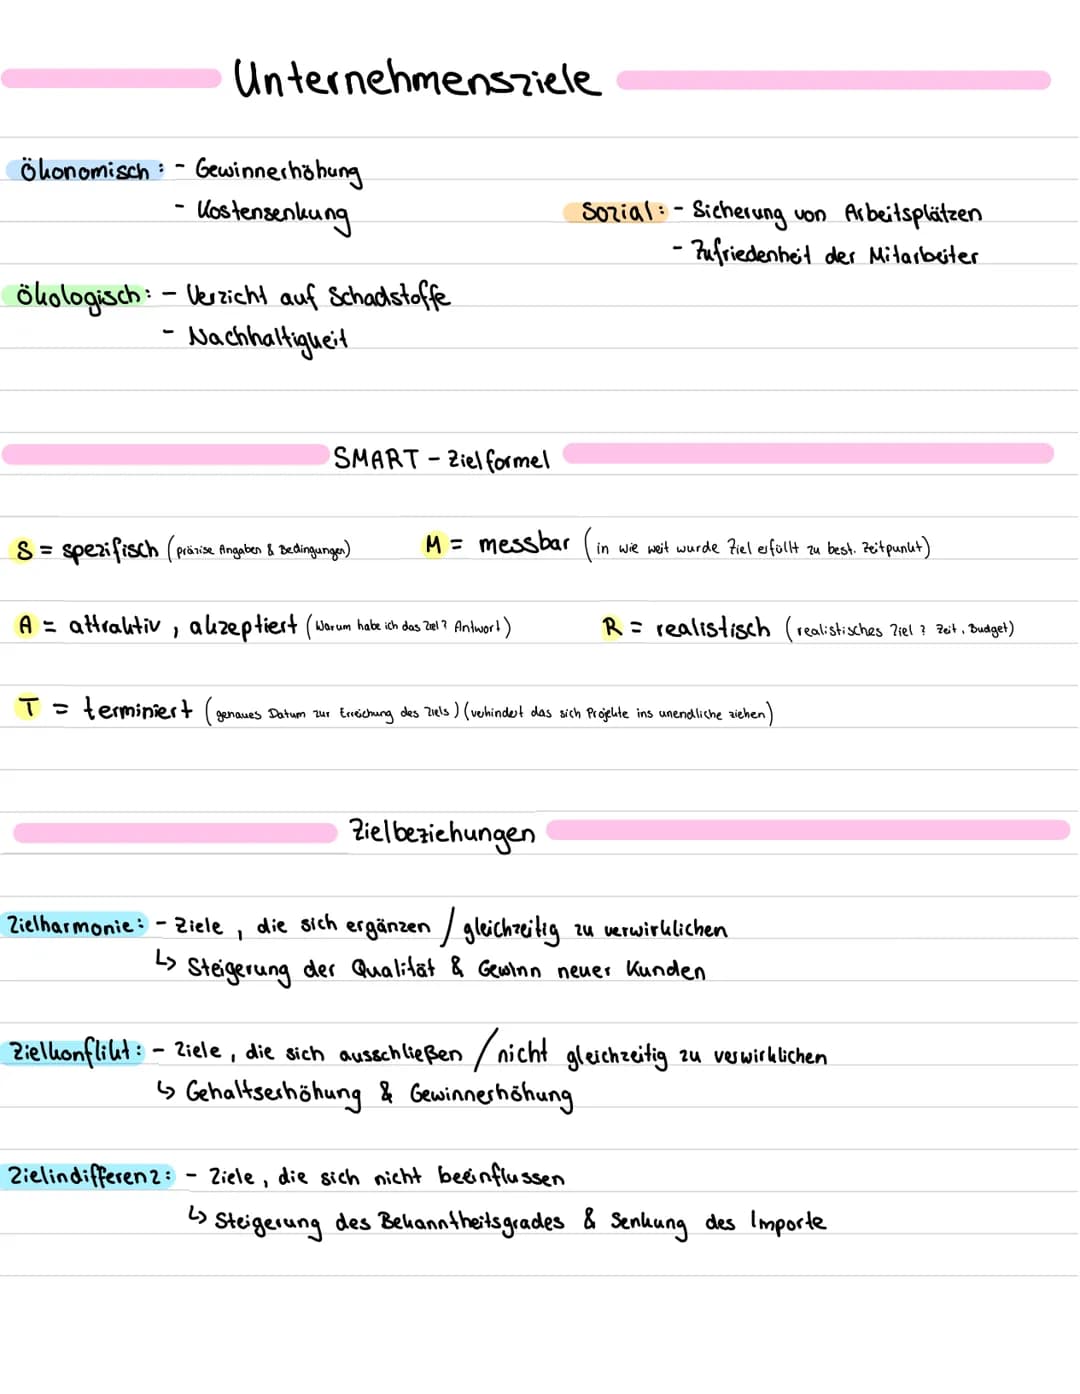 Unternehmensziele
Ökonomisch: - Gewinnerhöhung
- Kostensenkung
Sozial: - Sicherung von Arbeitsplätzen
- Zufriedenheit der Mitarbeiter
Ökologisch: - Verzicht auf Schadstoffe
- Nachhaltigkeit
SMART - Zielformel
S = spezifisch (präzise Angaben & Bedingungen)
M = messbar (in wie weit wurde Ziel erfüllt zu best. Zeitpunkt)
A = attraktiv, akzeptiert (Warum habe ich das Ziel? Antwort)
R = realistisch (realistisches Ziel? Zeit, Budget)
T = terminiert (genaues Datum zur Erreichung des Ziels) (vehindert das sich Projekte ins unendliche ziehen)
Zielbeziehungen
Zielharmonie: - Ziele, die sich ergänzen / gleichzeitig zu verwirklichen
↳ Steigerung der Qualität & Gewinn neuer Kunden
Zielkonflikt: - Ziele, die sich ausschließen / nicht gleichzeitig zu verwirklichen
↳ Gehaltserhöhung & Gewinnerhöhung
Zielindifferenz: - Ziele, die sich nicht beeinflussen
↳ Steigerung des Bekanntheitsgrades & Senkung des Importe